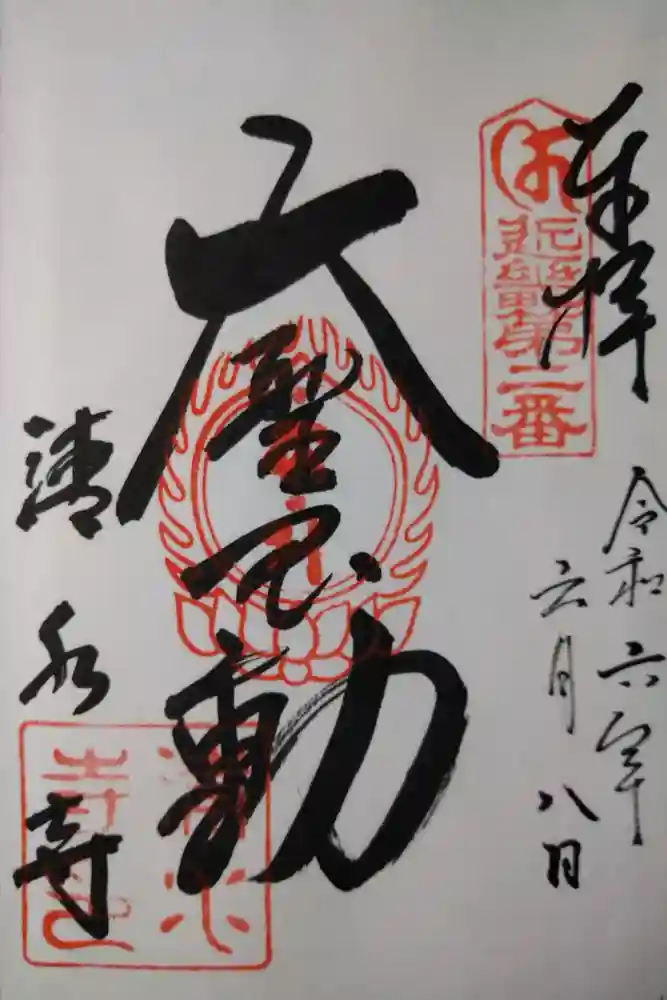 奉拝
近畿第二番
令和六年
六月八日
大聖不動
清水寺
清水
寺印